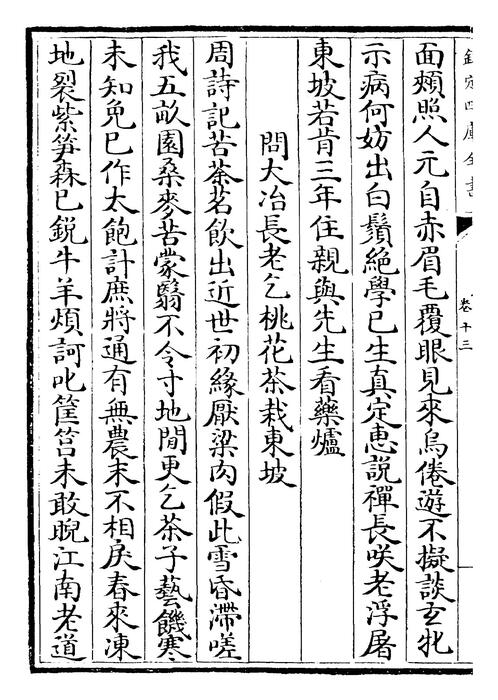 欽定四庫全書
卷十三
面頰照人元自赤眉毛覆眼見來烏倦遊不擬談玄牝
示病何妨出白鬚絶學已生真定恵説禪長咲老浮屠
東坡若肯三年住親與先生看藥爐
問大冶長老乞桃花茶栽東坡
周詩記苦茶茗飲出近世初緣厭粱肉假此雪昏滯嗟
我五畝園桑麥苦蒙翳不令寸地閒更乞茶子藝饑寒
未知免已作太飽計庶將通有無農末不相戾春來凍
地裂紫笋森已銳牛羊煩訶叱筐筥未敢睨江南老道